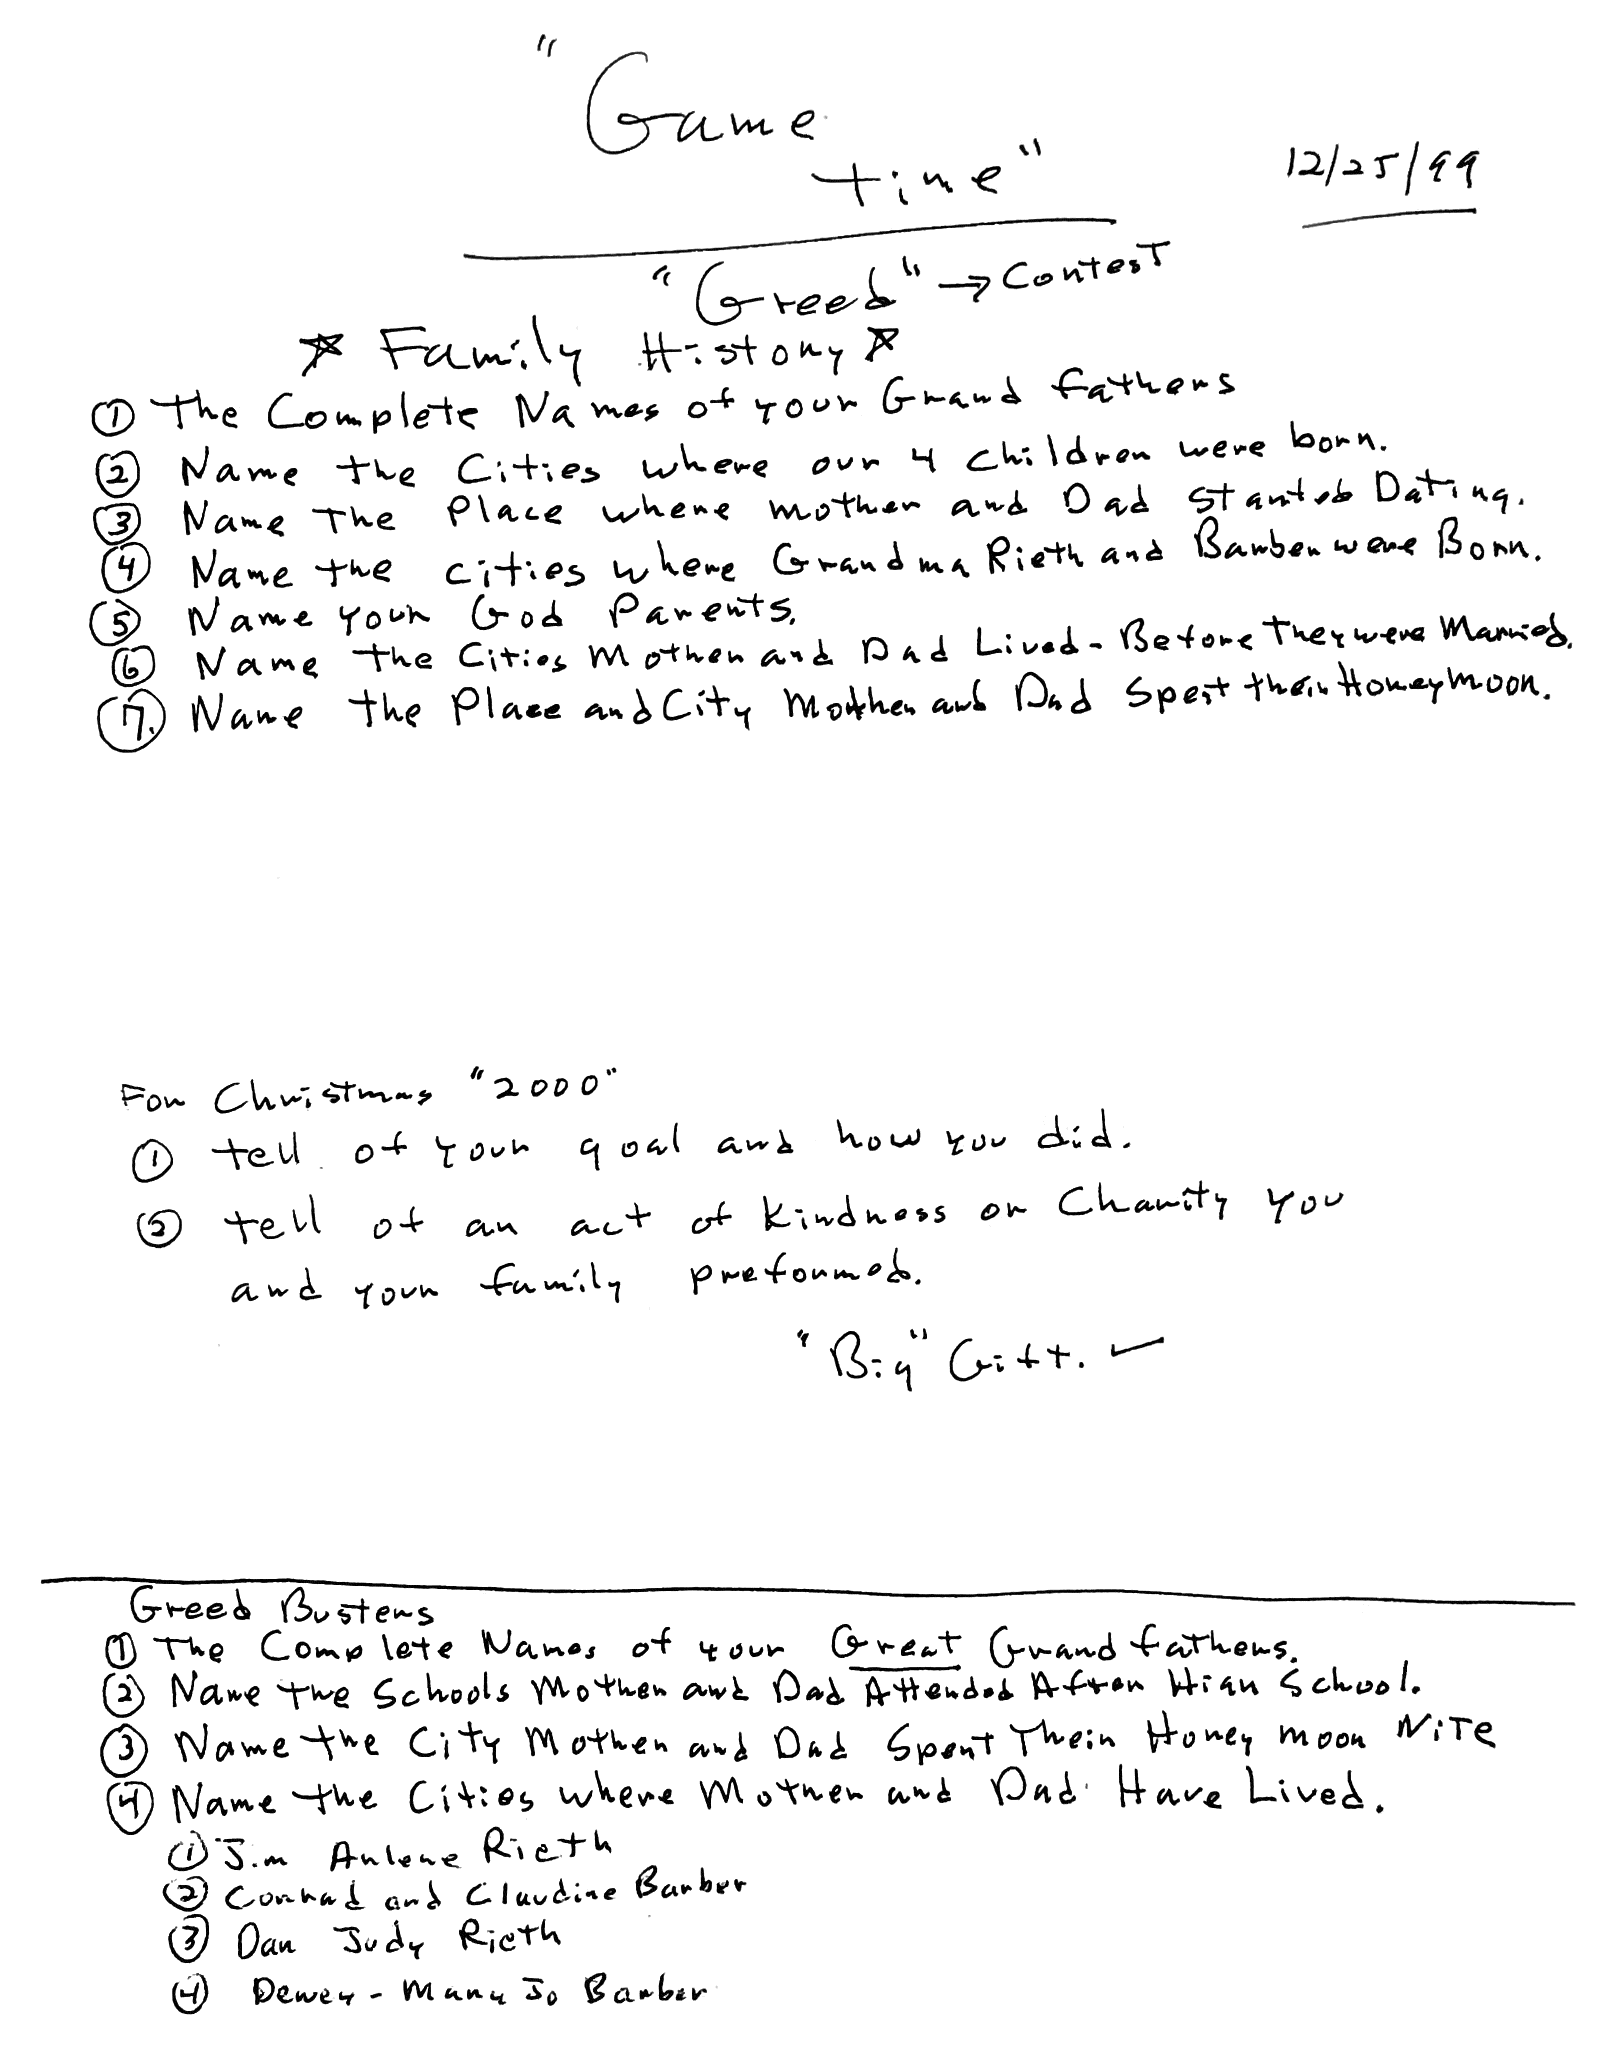 "Game
time"
12/25/99
"Greed" → Contest
☆ Family History ☆
① The Complete Names of your Grand fathers
② Name the Cities where our 4 children were born.
③ Name The Place where mother and Dad started Dating.
④ Name the cities where Grandma Rieth and Barber were Born.
⑤ Name your God Parents.
⑥ Name the Cities Mother and Dad Lived - Before They were Married.
⑦. Name the Place and City Mother and Dad Spent their HoneyMoon.
For Christmas "2000"
① tell of your goal and how you did.
② tell of an act of kindness or Charity you
and your family preformed.
"Big" Gift. ✓
Greed Busters
① The Complete Names of your Great Grand fathers.
② Name the Schools Mother and Dad Attended After High School.
③ Name the City Mother and Dad Spent Their Honey moon NiTe
④ Name the Cities where Mother and Dad Have Lived.
① Jim Arlene Rieth
② Conrad and Claudine Barber
③ Dan Judy Rieth
④ Dewey - Mary Jo Barber